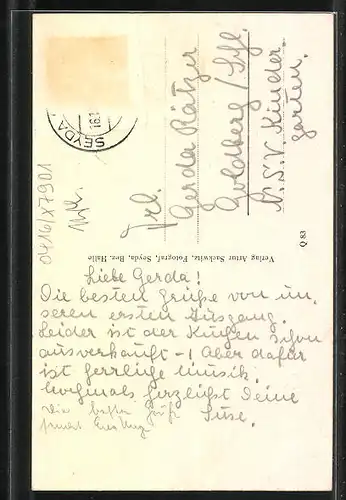 SEYDA
16.1
Frl.
Gerda Rätzer
Goldberg / Schl.
N.S.V. Kinder-
garten.
Q 83
Verlag Artur Sackwitz, Fotograf, Seyda, Bez. Halle
0416/X7901
Liebe Gerda!
Die besten Grüße von un-
seren ersten Ausgang.
Leider ist der Kuchen schon
ausverkauft -! Aber dafür
ist herrliche Musik.
Nochmals herzlichst Deine
Suse.
Die besten Grüße